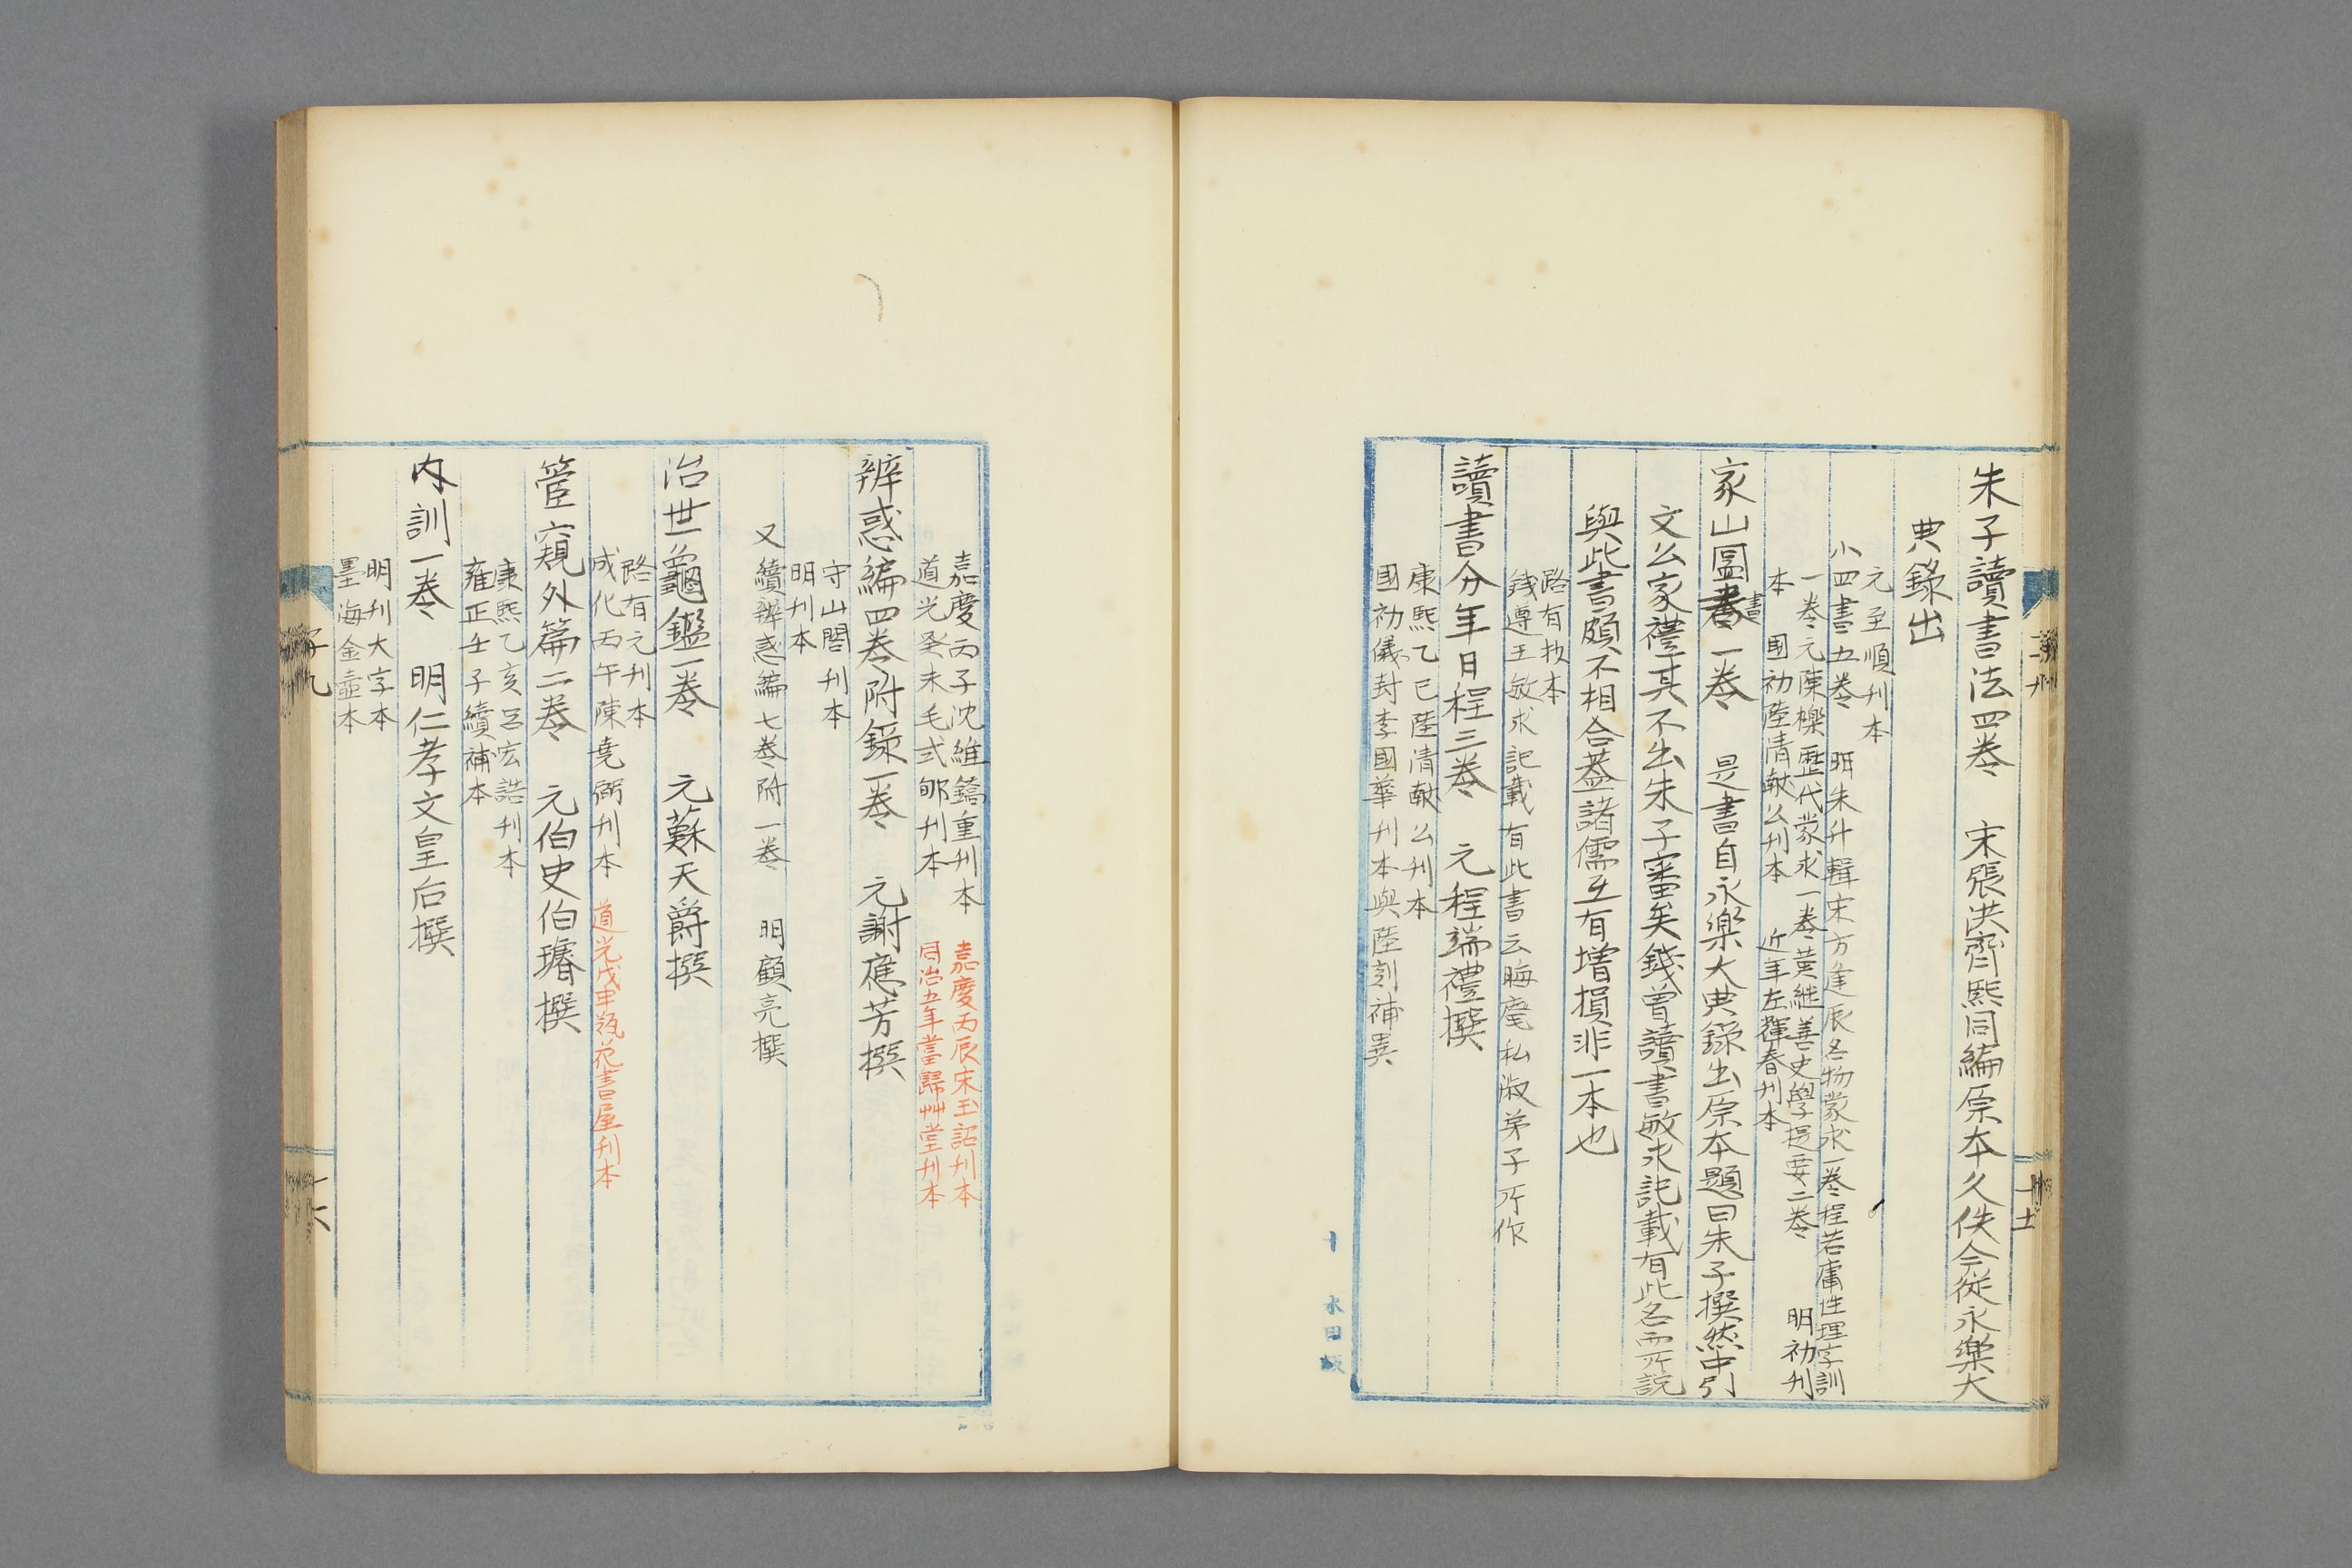 朱子讀書法四卷　宋張洪齊熙同編原本久佚今從永樂大
典錄出
元至順刊本
小四書五卷　明朱升輯宋方逢辰名物蒙求一卷程若庸性理字訓
一卷元陳櫟歷代蒙求一卷黃継善史學提要二卷　明初刋
本　國初陸清獻公刋本　近年左輝春刋本
家山圖書一卷　是書自永樂大典錄出原本題曰朱子撰然中引
書
文公家禮其不出朱子審矣錢曾讀書敏求記載有此名而所說
與此書頗不相合蓋諸儒互有增損非一本也
路有抄本
錢遵王敏求記載有此書云晦庵私淑弟子所作
讀書分年日程三卷　元程端禮撰
康熙乙巳陸清獻公刋本
國初儀封李國華刋本與陸刻補異
十
永田
嘉慶丙子沈維鐈重刋本　嘉慶丙辰宋玉詔刋本
道光癸未毛式郇刋本　同治五年當歸艸堂刋本
辨惑編四卷附錄一卷　元謝應芳撰
守山閣刋本
明刋本
又續辨惑編七卷附一卷　明顧亮撰
治世龜鑑一卷　元蘇天爵撰
路有元刋本
成化丙午陳堯弼刋本　道光戊申瓶花書屋刋本
管窺外篇二卷　元伯史伯璿撰
康熙乙亥呂宏誥刋本
雍正壬子續補本
內訓一卷　明仁孝文皇后撰
明刋大字本
墨海金壺本
子九
十六